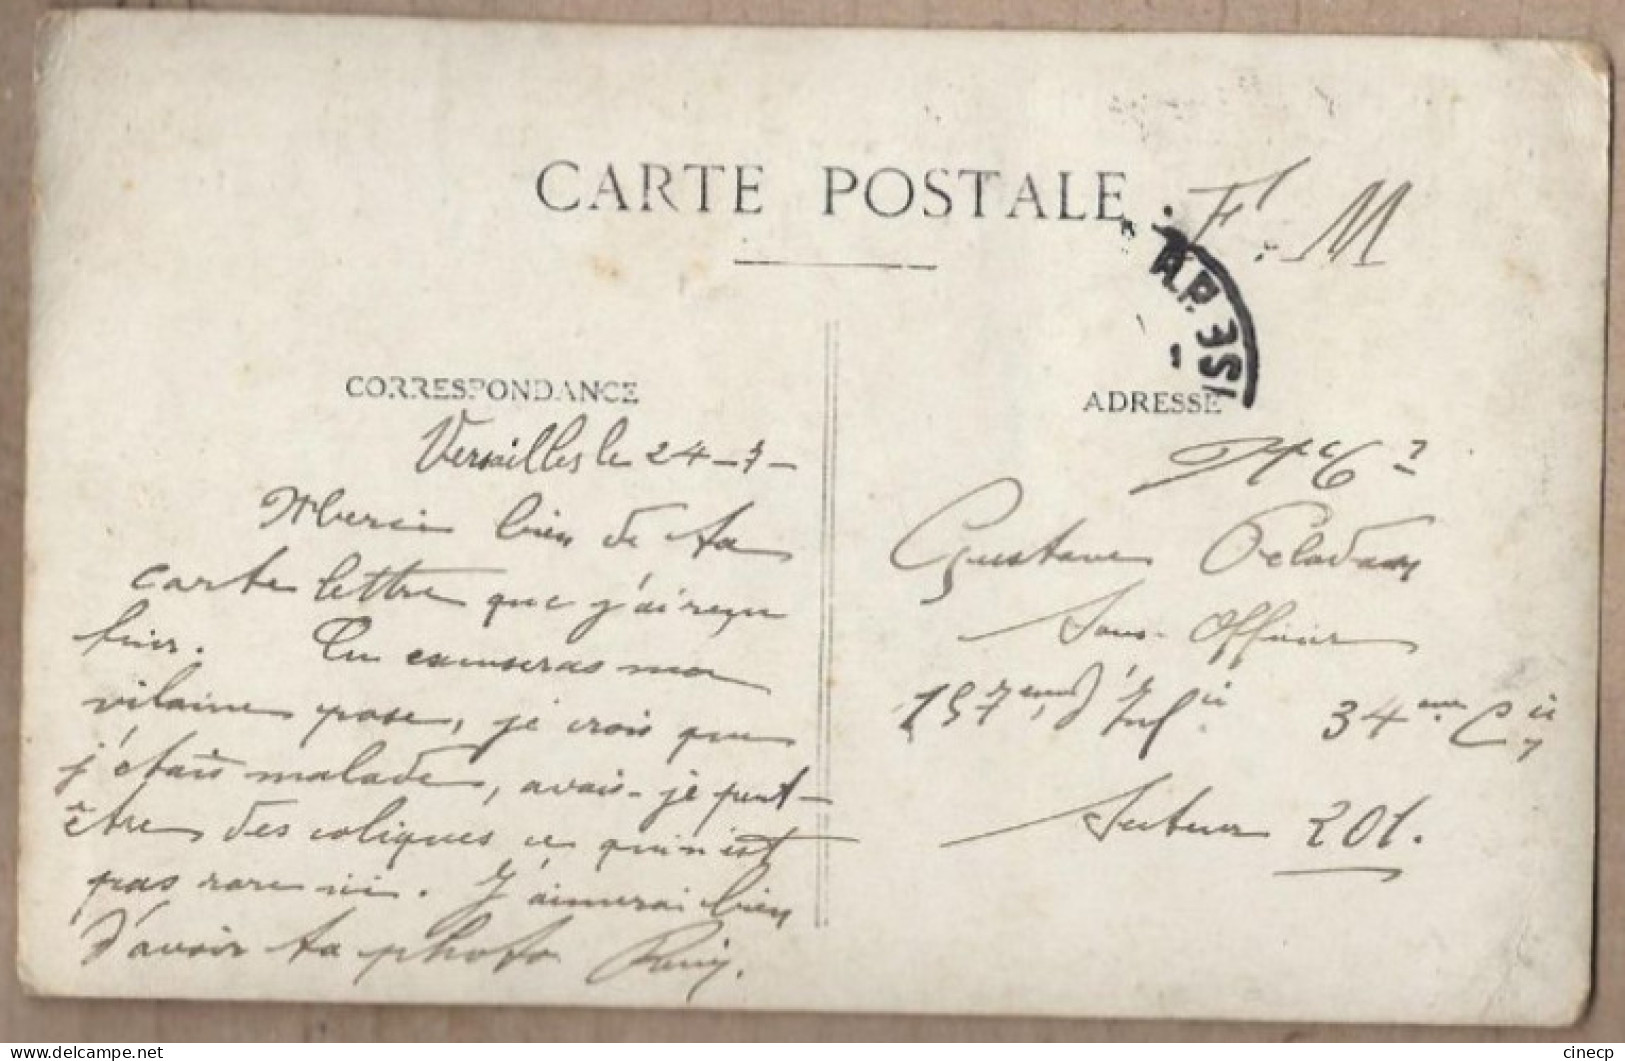 CARTE POSTALE
F. M
CORRESPONDANCE
Versailles le 24-7-
Merci bien de ta
carte lettre que j'ai reçu
hier. Tu excuseras ma
vilaine pose, je crois que
j'étais malade, avais-je peut-
être des coliques ce qui n'est
pas rare ici. J'aimerai bien
d'avoir ta photo Rémy.
ADRESSE
Gustave Peladan
Sous-Officier
157eme d'Infie 34eme Cie
Secteur 201.
cinecp